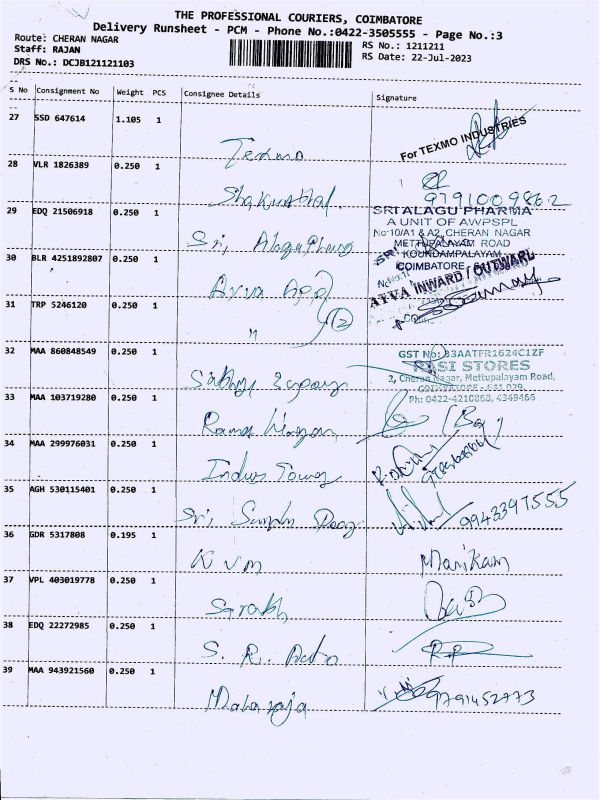 THE PROFESSIONAL COURIERS, COIMBATORE
Delivery Runsheet - PCM - Phone No.:0422-3505555 - Page No.:3
Route: CHERAN NAGAR
Staff: RAJAN
DRS No.: DCJB121121103
RS No.: 1211211
RS Date: 22-Jul-2023
S No Consignment No Weight PCS Consignee Details Signature
27 SSD 647614 1.105 1
Texmo
For TEXMO INDUSTRIES
28 VLR 1826389 0.250 1
9791009862
29 EDQ 21506918 0.250 1
Sri Alagu Pharma
SRI ALAGU PHARMA
A UNIT OF AWPSPL
No:10/A1 & A2, CHERAN NAGAR
METTUPALAYAM ROAD
KOUNDAMPALAYAM
COIMBATORE
30 BLR 4251892807 0.250 1
AYVA INWARD / OUTWARD
31 TRP 5246120 0.250 1
"
(12)
32 MAA 860848549 0.250 1
GST No: 33AATFR1624C1ZF
RASI STORES
2, Cheran Nagar, Mettupalayam Road,
COIMBATORE - 641 029
Ph: 0422-4210868, 4349466
33 MAA 103719280 0.250 1
34 MAA 299976031 0.250 1
Indus Tower
35 AGH 530115401 0.250 1
Sri
9943397555
36 GDR 5317808 0.195 1
KVM
Manikam
37 VPL 403019778 0.250 1
38 EDQ 22272985 0.250 1
S. R.
R.P
39 MAA 943921560 0.250 1
Maharaja
9791452773